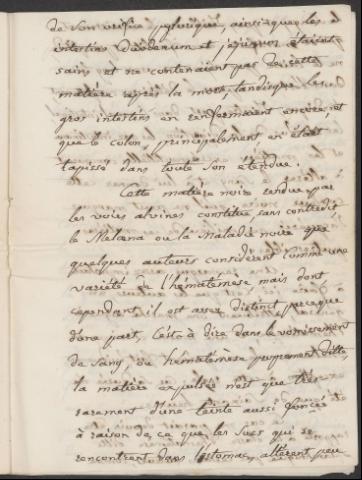 de son orifice pylorique, ainsi que les
intestins duodenum et jejunum étaient
sains et ne contenaient pas de cette
matière après la mort, tandisque les
gros intestins en renfermaient encore, et
que le colon, principalement en était
tapissé dans toute son étendue.
Cette matière noire rendue par
les voies alvines constitue sans contredit
le Melœna ou la maladie noire que
quelques auteurs considèrent comme une
variété de l'hématémèse mais dont
cependant il est assez distinct parceque
d'une part, c'est à dire dans le vomissement
de sang, ou hématémèse proprement dite
la matière expulsée n'est que très
rarement d'une teinte aussi foncée
à raison de ce que les sucs qui se
rencontrent dans l'estomac, altèrent peu